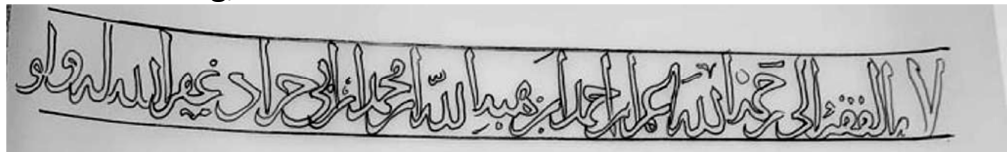 ٧ الفقير الى رحمة الله عمر ابن احمد ابن هبة الله ابن محمد ابن ابي جراد غفر الله له ولو